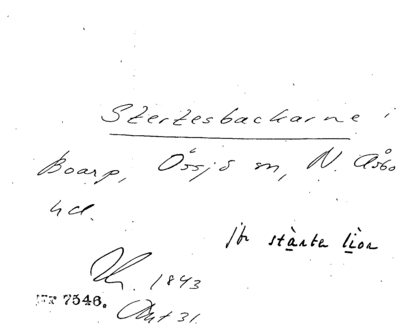 Stertesbackarne i
Boarp, Össjö sn, N. Åsbo
hd.
jfr stärta lion
1843
7546.
Akt 31.